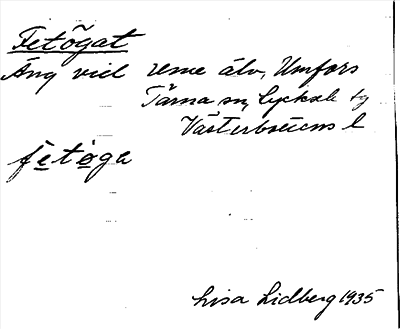 Fetögat
Äng vid Ume älv, Umfors
Tärna sn, Lycksele tg
Västerbottens l
fetöga
Lisa Lidberg 1935